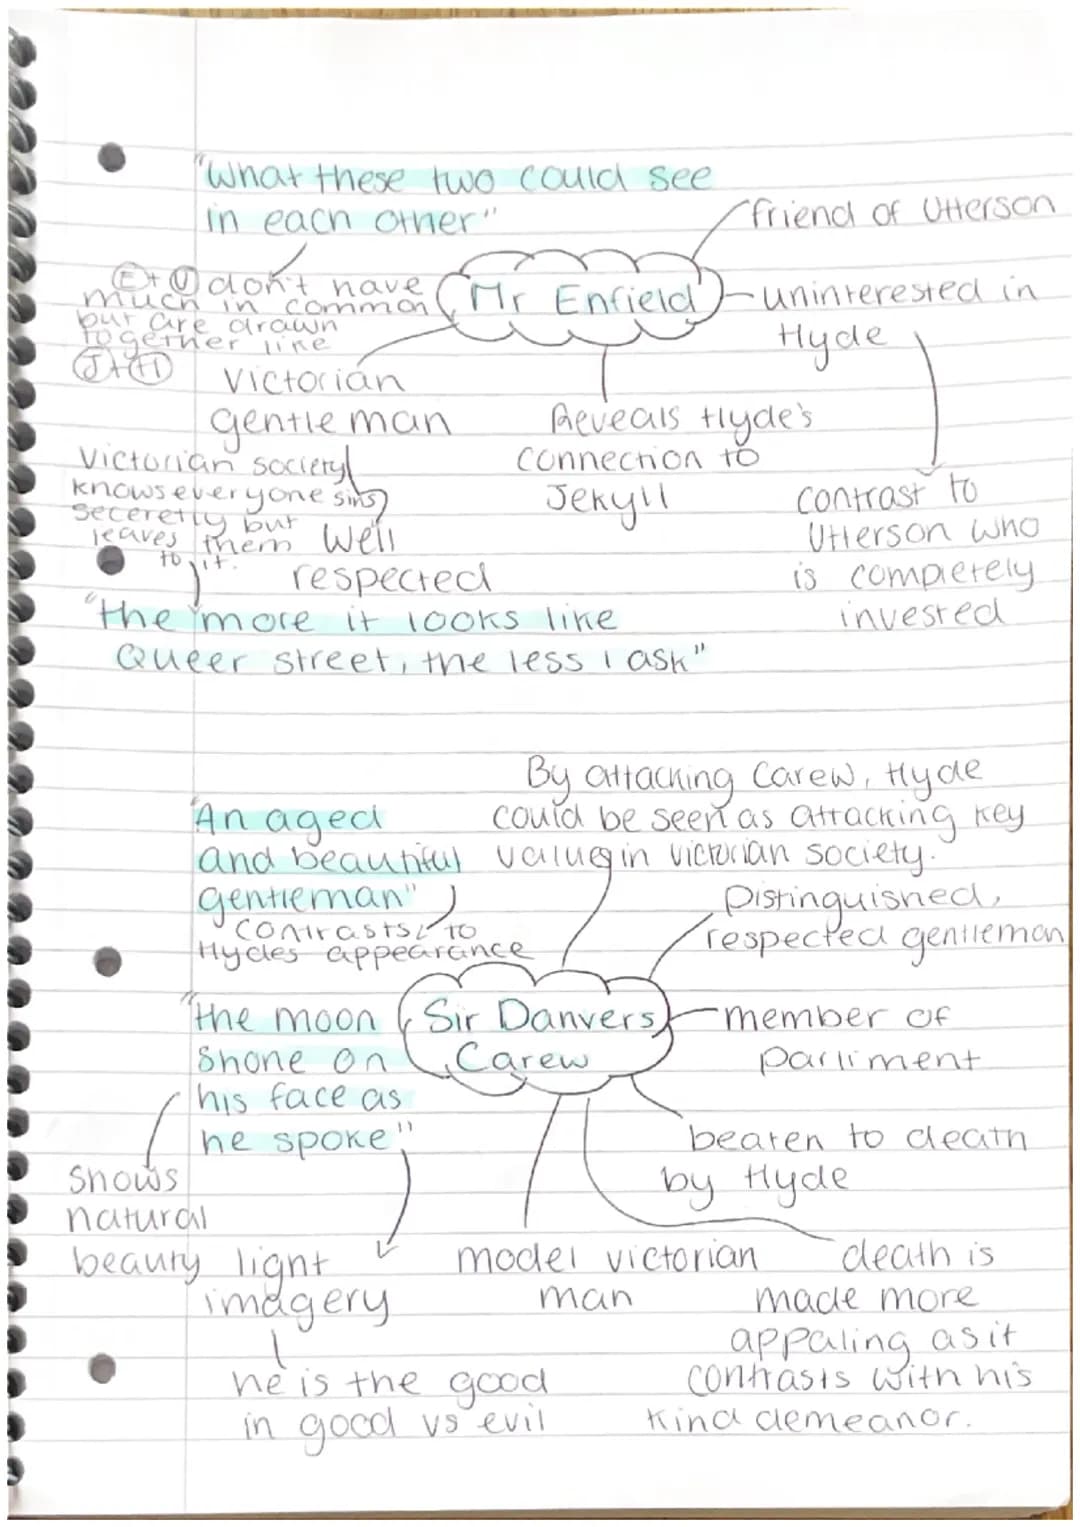 "What these two could see
in each other"
friend of Utterson
E + U don't have
much in common
but are drawn
together like
J + H
Mr Enfield
uninterested in
Hyde
Victorian
gentleman
Reveals Hyde's
connection to
Jekyll
contrast to
Utterson who
is completely
invested
Victorian society
knows everyone sins
seceretly but
leaves them
to it.
Well
respected
"the more it looks like
Queer street, the less I ask"
By attacking Carew, Hyde
could be seen as attacking key
values in victorian society.
"An aged
and beautiful
gentleman"
contrasts to
Hydes appearance
Distinguished,
respected gentleman
Sir Danvers
Carew
member of
parliment
"the moon
shone on
his face as
he spoke"
beaten to death
by Hyde
shows
natural
beauty
light
imagery
model victorian
man
death is
made more
appaling as it
contrasts with his
kind demeanor.
he is the good
in good vs evil